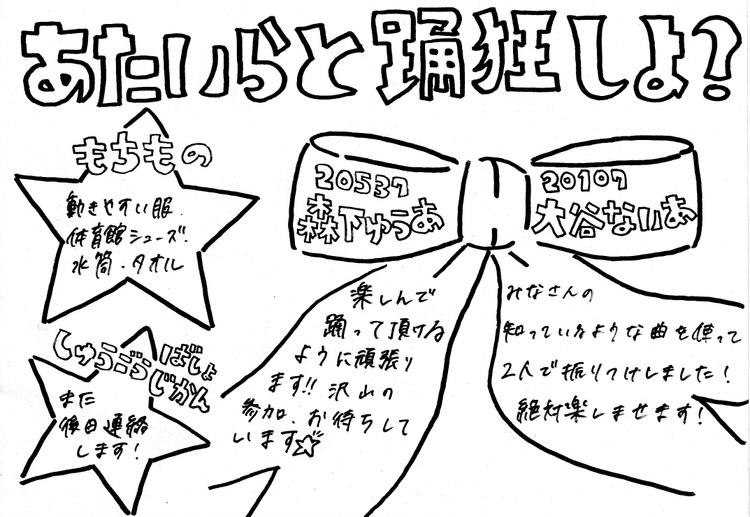 あたいらと踊狂しよ?
もちもの
動きやすい服.
体育館シューズ.
水筒.タオル
しゅうごうばじょ
じかん
また
後日連絡
します!
20537
森下ゆうあ
20107
大谷ないあ
楽しんで
踊って頂ける
ように頑張り
ます!!沢山の
参加、お待ちして
います☆
みなさんの
知っているような曲を使って
2人で振りつけしました!
絶対楽しませます!